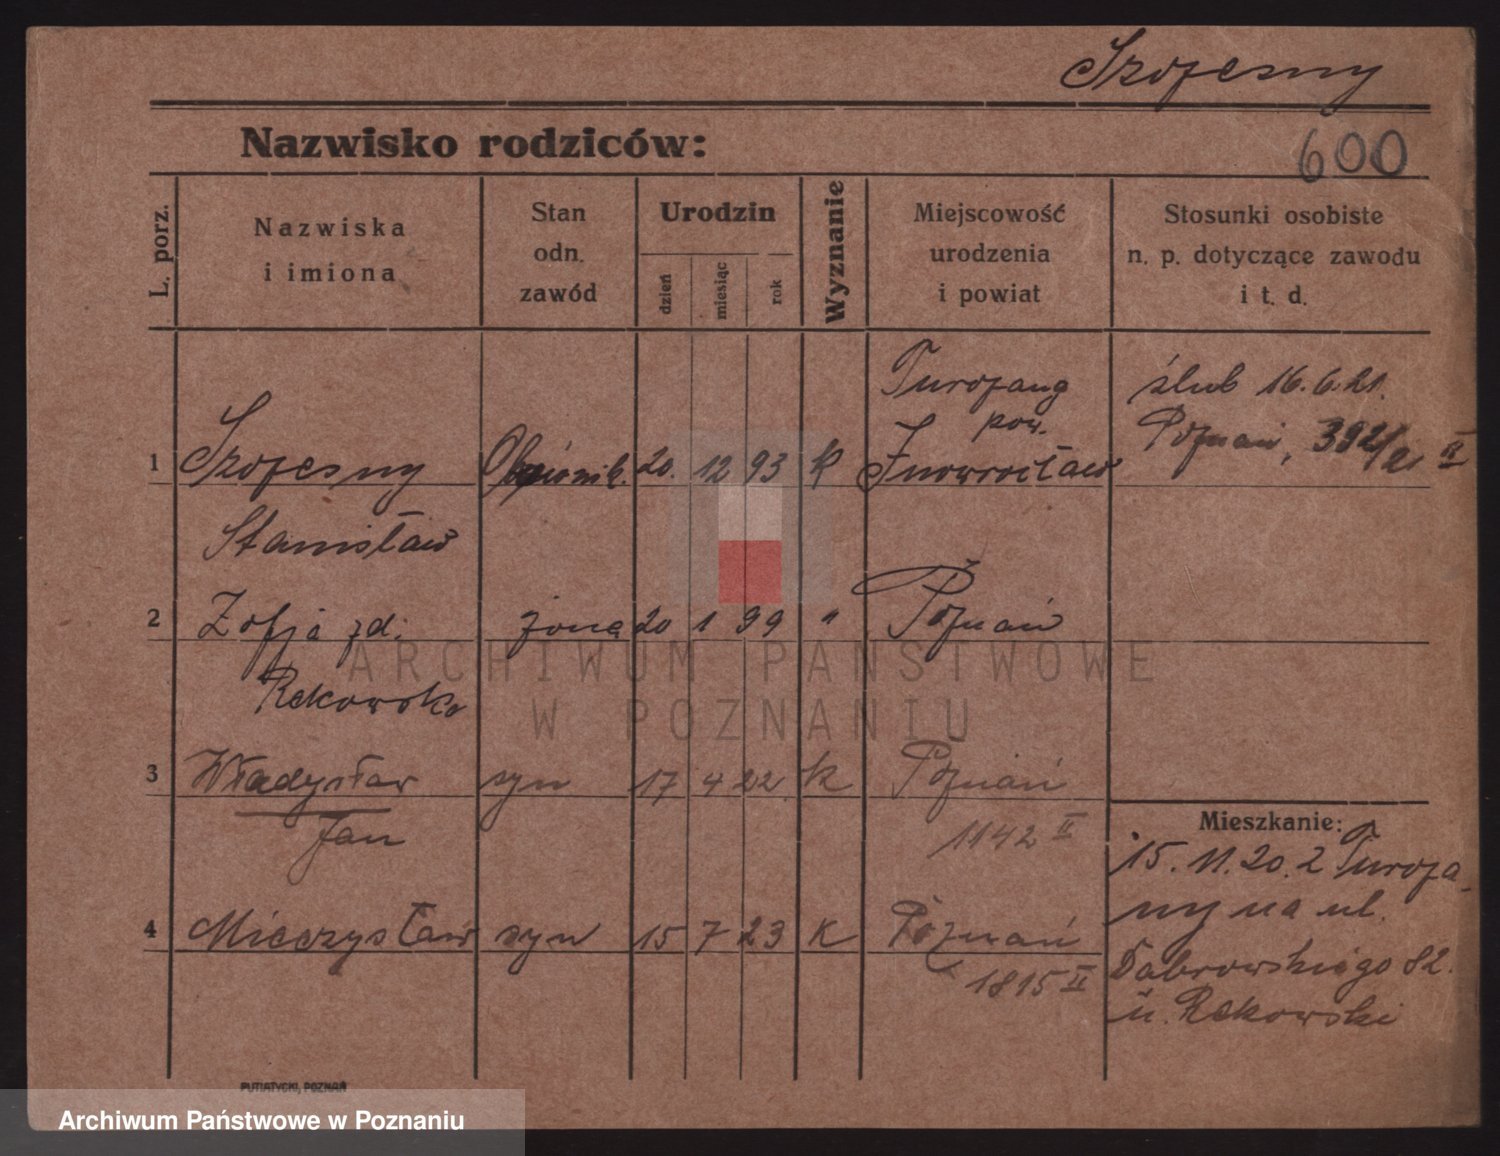 Szojesny
600
Nazwisko rodziców:
L. porz.
Nazwiska
i imiona
Stan
odn.
zawód
Urodzin
dzień
miesiąc
rok
Wyznanie
Miejscowość
urodzenia
i powiat
Stosunki osobiste
n. p. dotyczące zawodu
i t. d.
1 Szojesny 20. 12 93 k
Stanisław
pow.
Inowrocław
ślub 16.6.21.
Poznań, 392/21 II
2 Zofja zd. żona 20 1 99 " Poznań
Rekowska
3 Władysław syn 17 4 22 k Poznań
Jan
1142 II
4 Mieczysław syn 15 7 23 k Poznań
1815 II
Mieszkanie:
15. 11. 20. z
na ul.
Dąbrowskiego 82.
u. Rekowski
PUTIATYCKI, POZNAŃ
ARCHIWUM PAŃSTWOWE
W POZNANIU
Archiwum Państwowe w Poznaniu